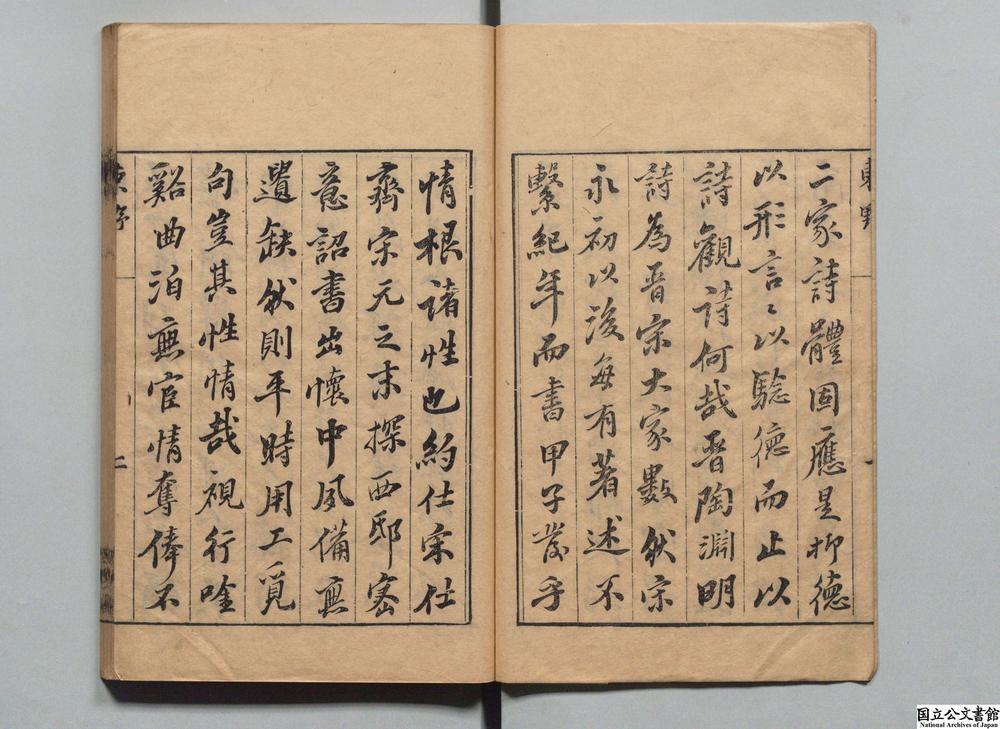 二家詩體固應是抑德
以形言〻以驗德而止以
詩觀詩何哉晋陶淵明
詩為晋宋大家數然宋
永初以後每有著述不
繫紀年而書甲子發乎
情根諸性也約仕宋仕
齊宋元之末探西邸密
意詔書出懷中夙備無
遺缺然則平時用工覓
句豈其性情哉視行吟
谿曲泊無宦情奪俸不
東野
一
東序
二
国立公文書館
National Archives of Japan